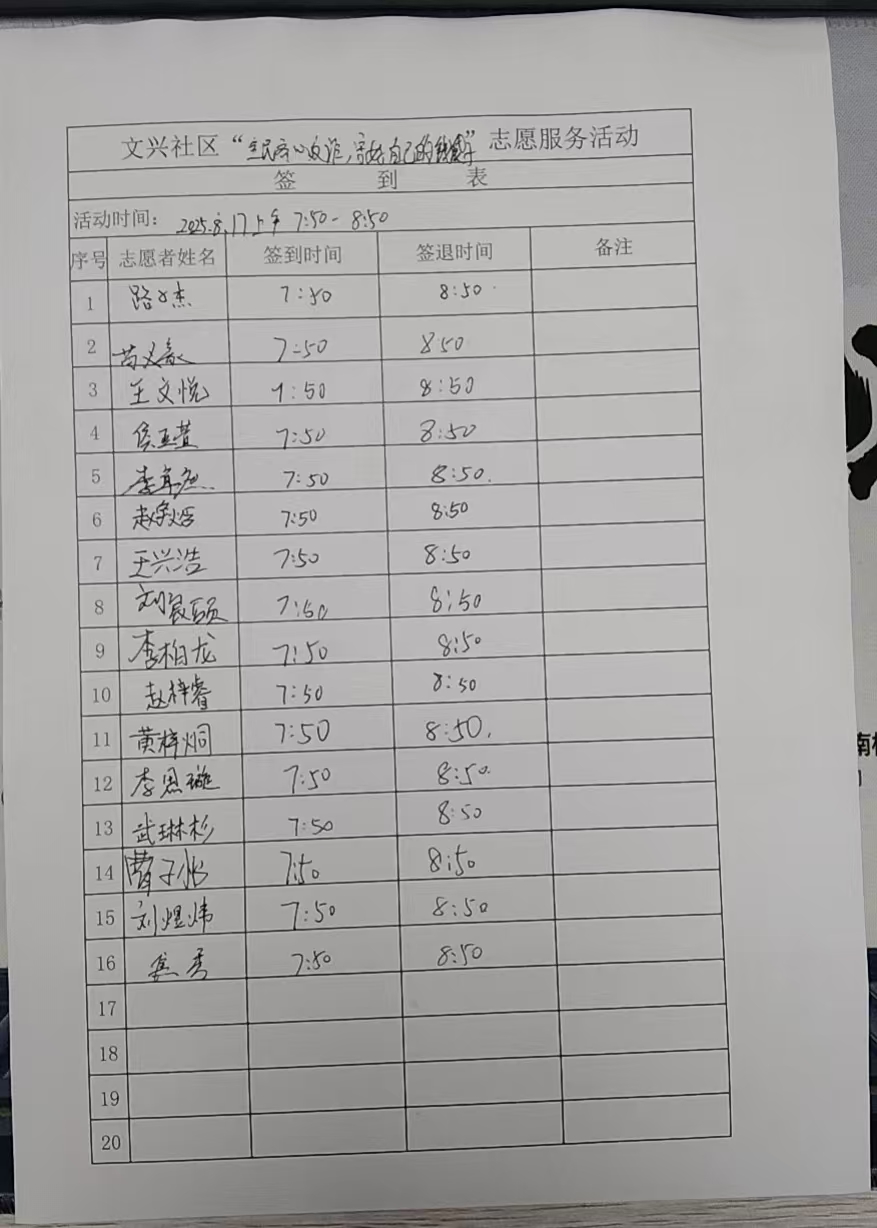 文兴社区“全民齐心反诈,守好自己的钱袋子”志愿服务活动
签 到 表
活动时间: 2025.8.17上午 7:50-8:50
序号 志愿者姓名 签到时间 签退时间 备注
1 路文杰 7:50 8:50
2 7:50 8:50
3 王文悦 7:50 8:50
4 侯亚萱 7:50 8:50
5 7:50 8:50
6 7:50 8:50
7 王兴浩 7:50 8:50
8 7:50 8:50
9 李柏龙 7:50 8:50
10 赵梓睿 7:50 8:50
11 黄梓炯 7:50 8:50
12 李恩璇 7:50 8:50
13 武琳杉 7:50 8:50
14 7:50 8:50
15 刘煜炜 7:50 8:50
16 7:50 8:50
17
18
19
20
南